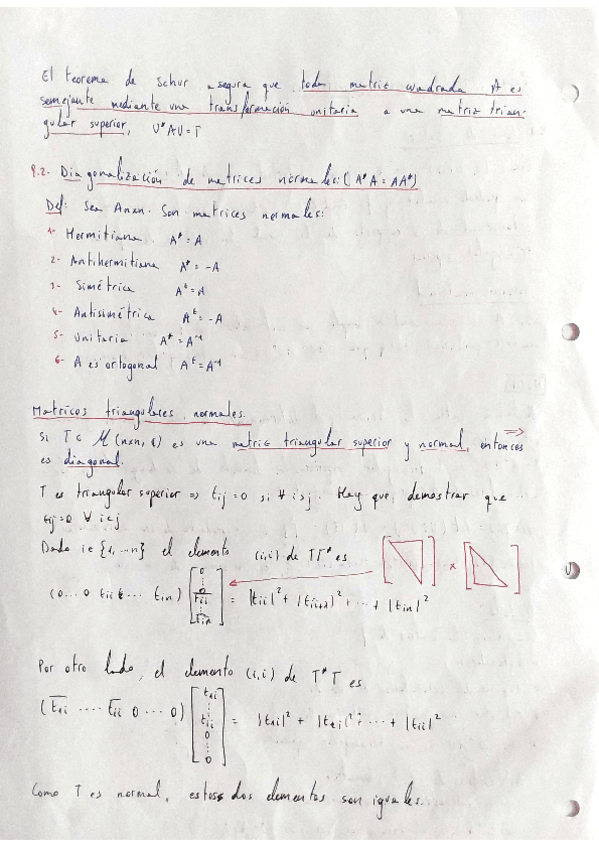 El teorema de Schur asegura que toda matriz cuadrada A es
semejante mediante una transformación unitaria a una matriz trian-
gular superior, U*AU=T
9.2- Diagonalización de matrices normales: (A*A = AA*)
Def: Sea Anxn. Son matrices normales:
1- Hermitiana A* = A
2- Antihermitiana A* = -A
3- Simétrica Aᵗ = A
4- Antisimétrica Aᵗ = -A
5- Unitaria A* = A⁻¹
6- A es ortogonal Aᵗ = A⁻¹
Matrices triangulares normales.
Si T ∈ M(nxn, ℂ) es una matriz triangular superior y normal, entonces ⇒
es diagonal.
T es triangular superior ⇒ tij = 0 si ∀ i>j. Hay que demostrar que
tij=0 ∀ i<j
Dado i∈{1, ...n} el elemento (i,i) de TT* es
[ ] x [ ]
(0... 0 tii t... tin) [0 ⋮ 0 t̅ii ⋮ t̅in] = |tii|² + |tii+1|² + ... + |tin|²
Por otro lado, el elemento (i,i) de T*T es
(t̅1i .... t̅ii 0 ... 0) [t1i ⋮ tii 0 ⋮ 0] = |t1i|² + |t2i|² + ... + |tii|²
Como T es normal, estos dos elementos son iguales.